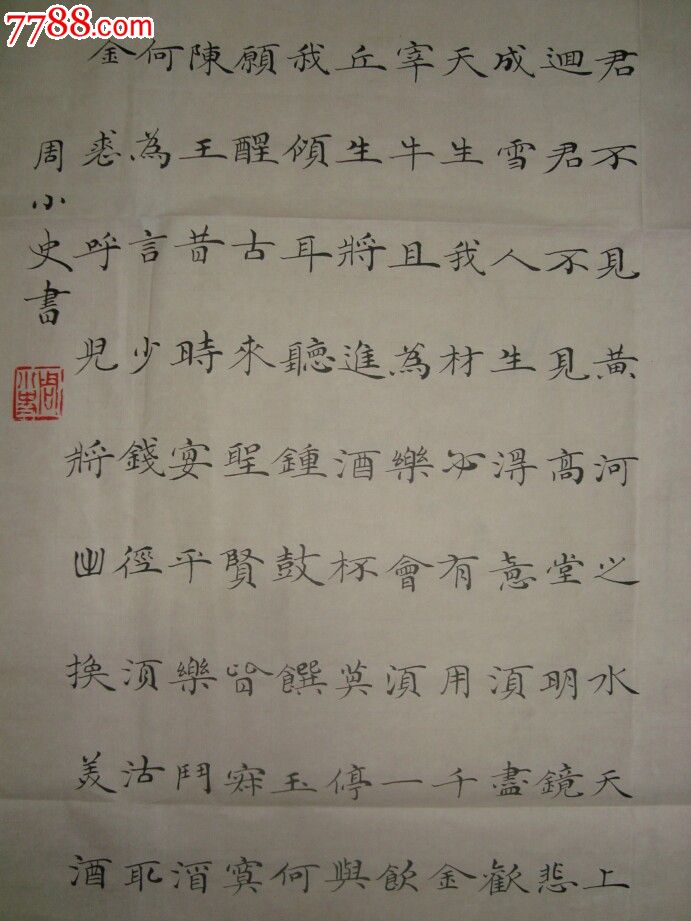 7788.com
君不見黃河之水天上
迴君不見高堂明鏡悲
成雪人生得意須盡歡
天生我材必有用千金
宰牛且為樂會須一飲
丘生將進酒杯莫停與
我傾耳聽鍾鼓饌玉何
願醒古來聖賢皆寂寞
陳王昔時宴平樂鬥酒
何為言少錢徑須沽取
金裘呼兒將出換美酒
周小史書